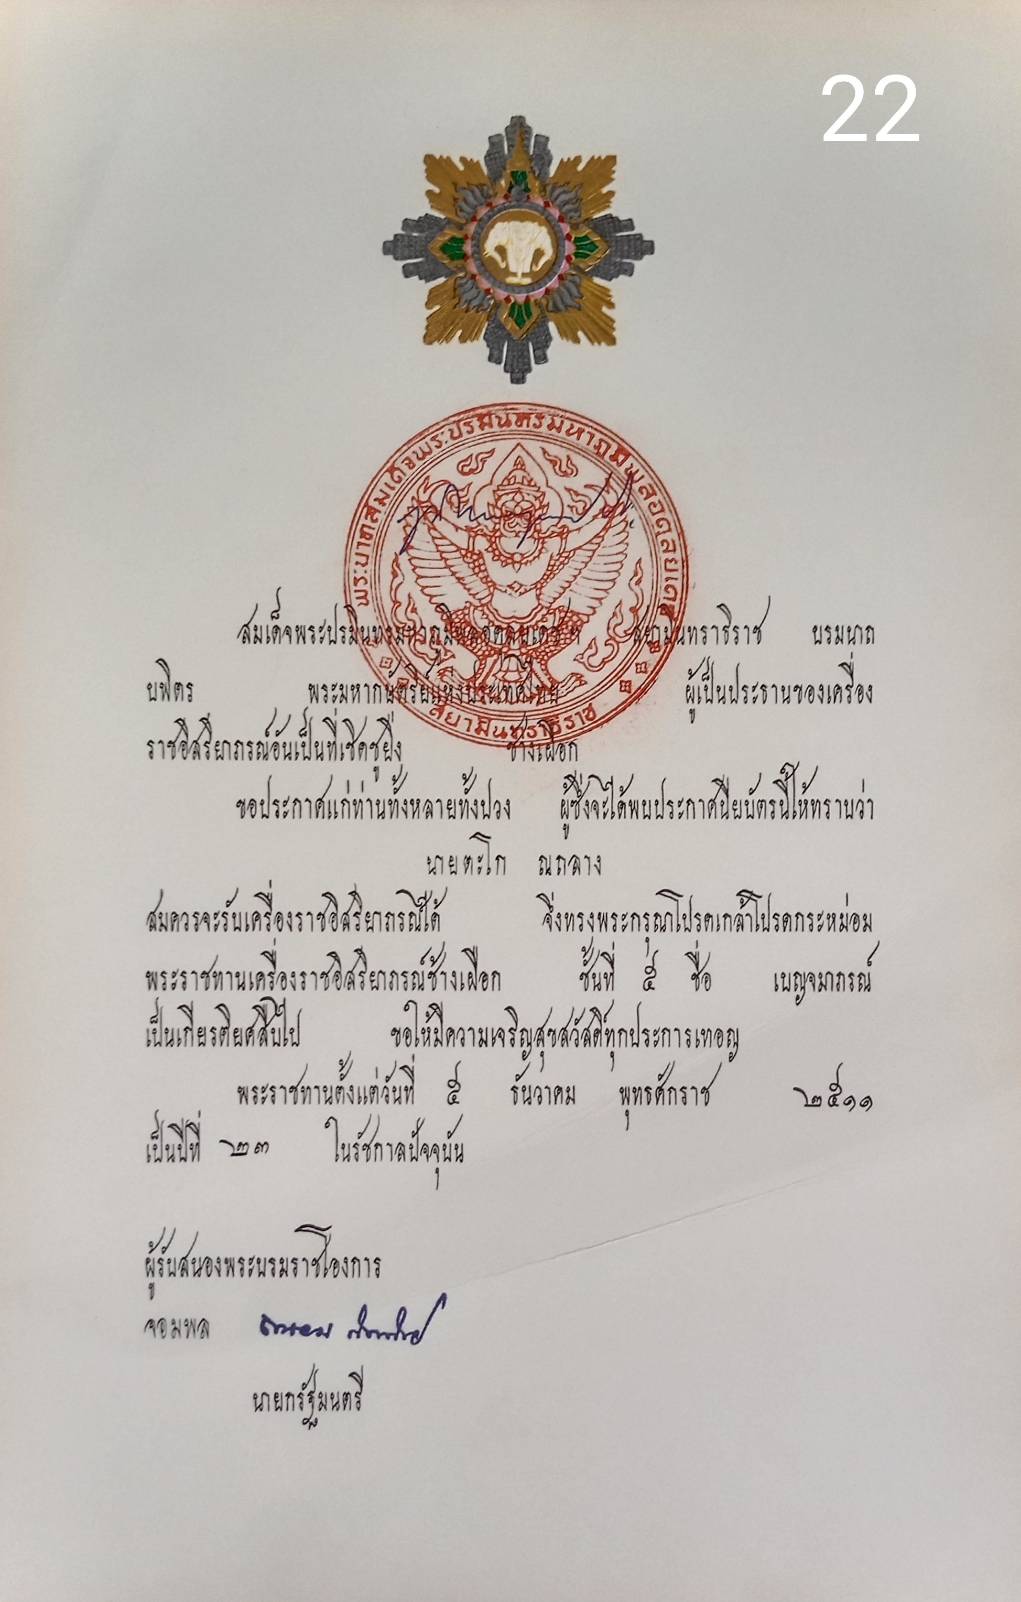 22
พระบาทสมเด็จพระปรมินทรมหาภูมิพลอดุลยเดช
สยามินทราธิราช
สมเด็จพระปรมินทรมหาภูมิพลอดุลยเดช ฯ สยามินทราธิราช บรมนาถ
บพิตร พระมหากษัตริย์แห่งประเทศไทย ผู้เป็นประธานของเครื่อง
ราชอิสริยาภรณ์อันเป็นที่เชิดชูยิ่ง ช้างเผือก
ขอประกาศแก่ท่านทั้งหลายทั้งปวง ผู้ซึ่งจะได้พบประกาศนียบัตรนี้ให้ทราบว่า
นายตะโก ณถลาง
สมควรจะรับเครื่องราชอิสริยาภรณ์ได้ จึ่งทรงพระกรุณาโปรดเกล้าโปรดกระหม่อม
พระราชทานเครื่องราชอิสริยาภรณ์ช้างเผือก ชั้นที่ ๕ ชื่อ เบญจมาภรณ์
เป็นเกียรติยศสืบไป ขอให้มีความเจริญสุขสวัสดิ์ทุกประการเทอญ
พระราชทานตั้งแต่วันที่ ๕ ธันวาคม พุทธศักราช ๒๕๑๑
เป็นปีที่ ๒๓ ในรัชกาลปัจจุบัน
ผู้รับสนองพระบรมราชโองการ
จอมพล ถนอม กิตติขจร
นายกรัฐมนตรี